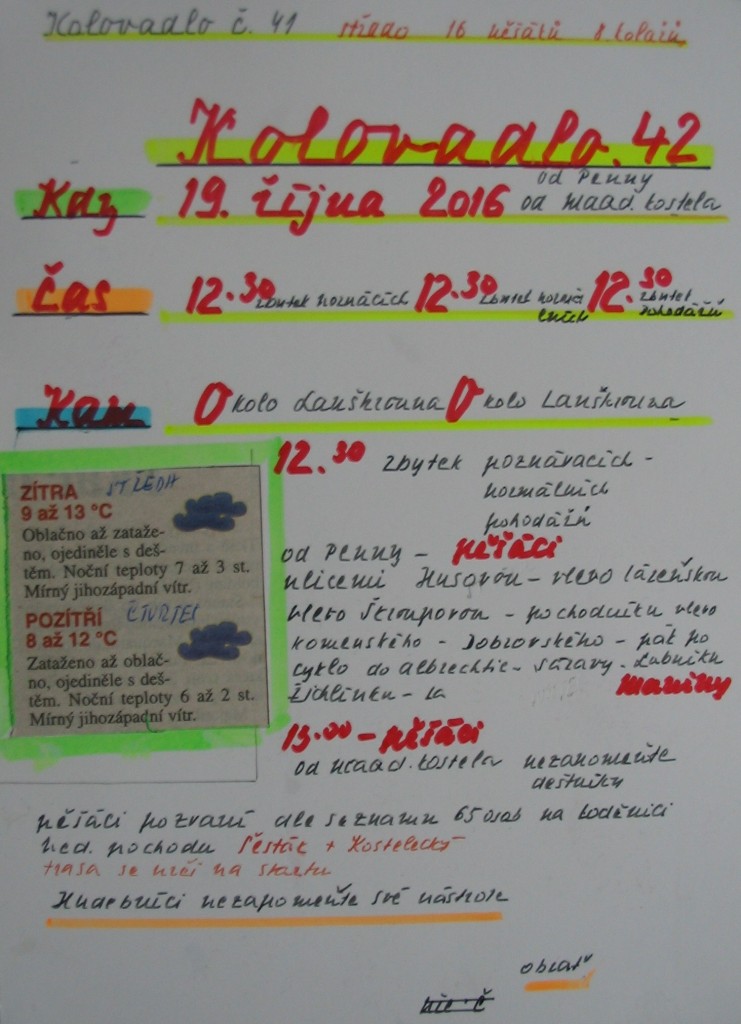 Kolovadlo č. 41 středa 16 pěšáků 8 kolařů
Kolovadlo. 42
od Penny
Kdy 19. října 2016 od maad. kostela
Čas 12.30 zbytek poznácích 12.30 zbytek normá 12.30 zbytek
lních pohodářů
Kam Okolo Lanškrouna Okolo Lanškrouna
12.30 zbytek poznávacích -
normálních
pohodářů
ZÍTRA STŘEDA
9 až 13 °C
Oblačno až zataže-
no, ojediněle s deš-
těm. Noční teploty 7 až 3 st.
Mírný jihozápadní vítr.
POZÍTŘÍ ČTVRTEK
8 až 12 °C
Zataženo až oblač-
no, ojediněle s deš-
těm. Noční teploty 6 až 2 st.
Mírný jihozápadní vítr.
od Penny - pěšáci
ulicemi Husovou - vlevo lázeňskou
vlevo Škroupovou - pochodníku vlevo
komenského - Dobrovského - pák po
cyklo do albrechtic - sázavy - Lubníku
Žichlínku - la Maríny
15.00 - pěšáci
od maad. kostela nezapomeňte
deštníky
pěšáci pozvaní dle seznamu 65 osob na loděnici
ved. pochodu Šesták + Kostelecký
trasa se určí na startu
Hudebníci nezapomeňte své nástroje
obrať